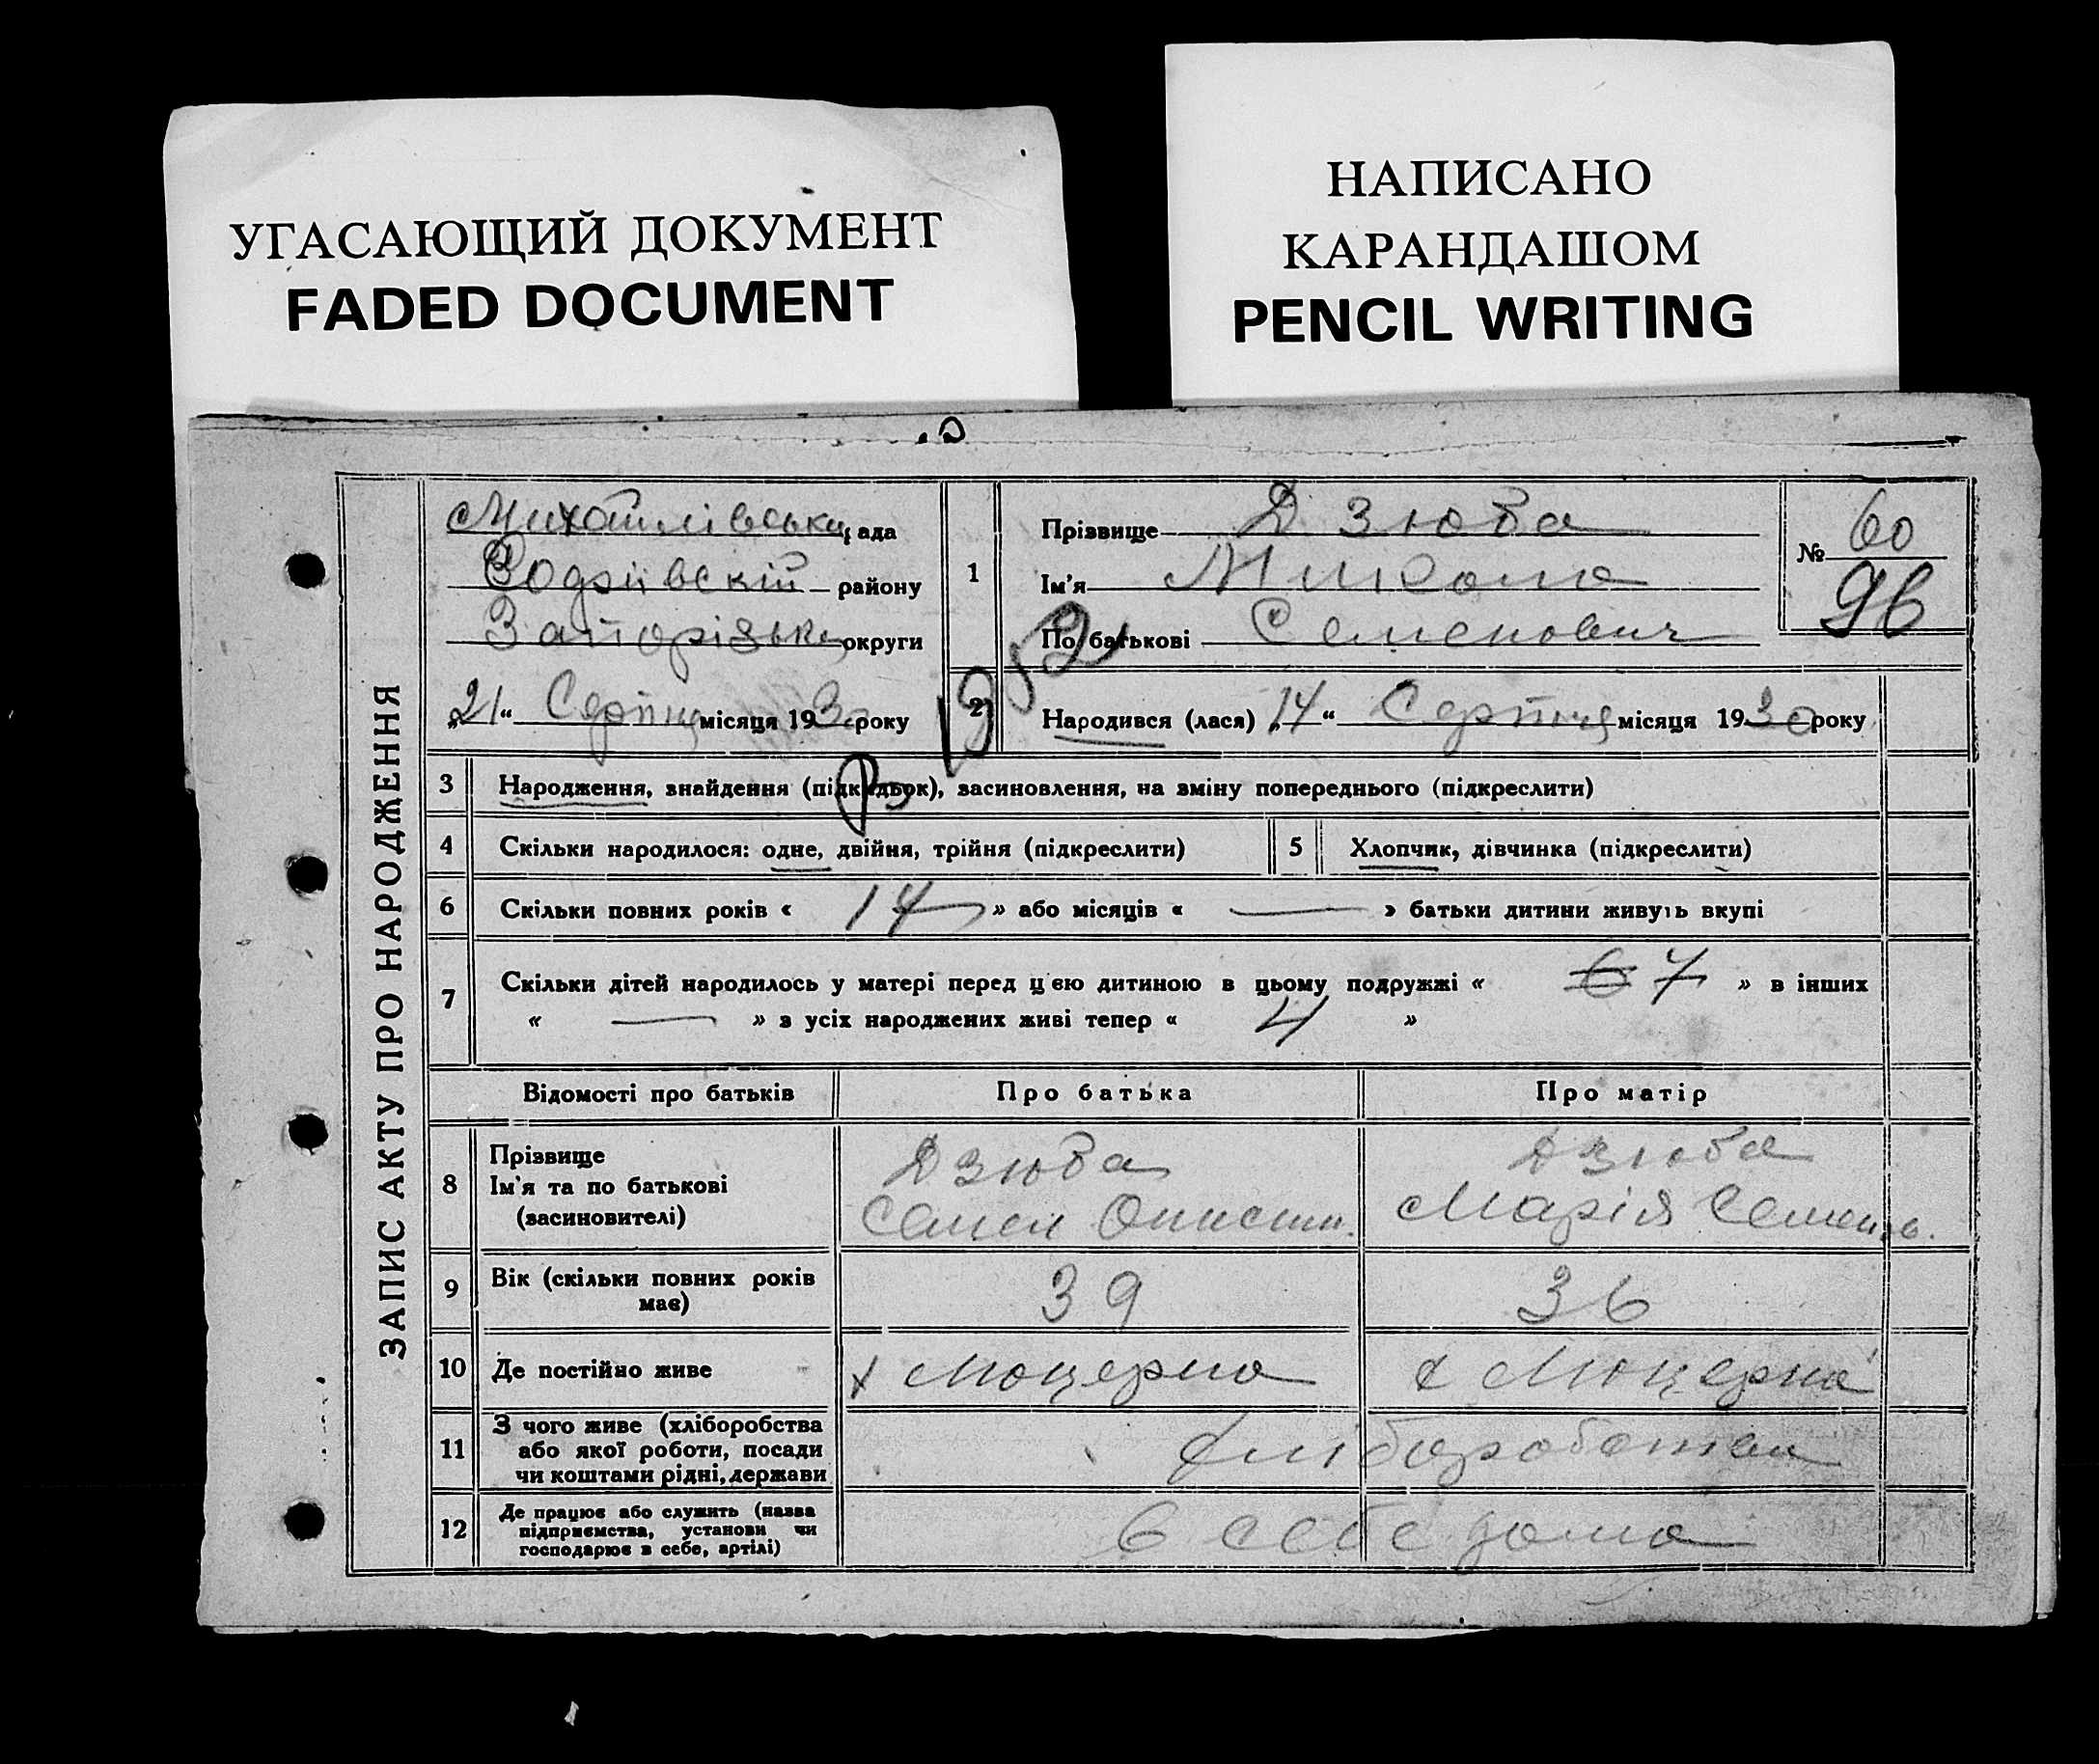 УГАСАЮЩИЙ ДОКУМЕНТ
FADED DOCUMENT
НАПИСАНО
КАРАНДАШОМ
PENCIL WRITING
ЗАПИС АКТУ ПРО НАРОДЖЕННЯ
Михайлівська рада
району
Запорізька округи
„21“ Серпня місяця 1930 року
1
Прізвище Дзюба
Ім'я Микола
По батькові Семенович
№ 60
96
2
Народився (лася) „14“ Серпня місяця 1930 року
3 Народження, знайдення (підкидьок), засиновлення, на зміну попереднього (підкреслити)
4 Скільки народилося: одне, двійня, трійня (підкреслити)
5 Хлопчик, дівчинка (підкреслити)
6 Скільки повних років « 17 » або місяців « — » батьки дитини живуть вкупі
7 Скільки дітей народилось у матері перед цією дитиною в цьому подружжі « 6 7 » в інших
« — » з усіх народжених живі тепер « 4 »
Відомості про батьків Про батька Про матір
8
Прізвище
Ім'я та по батькові
(засиновителі)
Дзюба
Семен
Дзюба
Марія Семенів.
9
Вік (скільки повних років
має)
39
36
10 Де постійно живе
х Люцерна
х Люцерна
11
З чого живе (хліборобства
або якої роботи, посади
чи коштами рідні, держави
12
Де працює або служить (назва
підприємства, установи чи
господарює в себе, артілі)
в себе дома